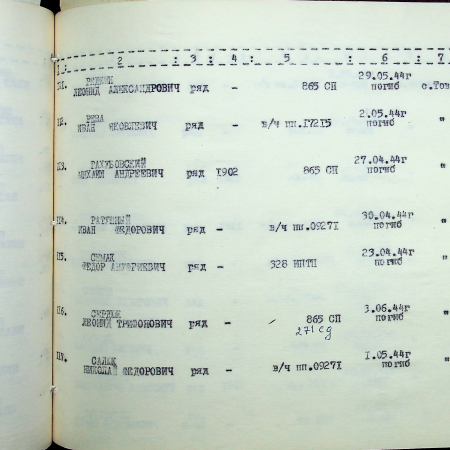 2 : 3 : 4 : 5 : 6 : 7
29.05.44г
ЛЕОНИД АЛЕКСАНДРОВИЧ ряд - 865 СП погиб
II2. РЕВА 2.05.44г
ИВАН ЯКОВЛЕВИЧ ряд - в/ч пп.17215 погиб "
II3. 27.04.44г
МИХАИЛ АНДРЕЕВИЧ ряд 1902 865 СП погиб "
II4. РАТУШНЫЙ 30.04.44г
ИВАН ФЕДОРОВИЧ ряд - в/ч пп.09271 погиб "
II5. 23.04.44г
ФЕДОР ряд - 328 ИПТП погиб "
II6. СЕРДЮК 3.06.44г
ЛЕОНИД ТРИФОНОВИЧ ряд - 865 СП погиб "
271 сд
II7. 1.05.44г
НИКОЛАЙ ФЕДОРОВИЧ ряд - в/ч пп.09271 погиб "